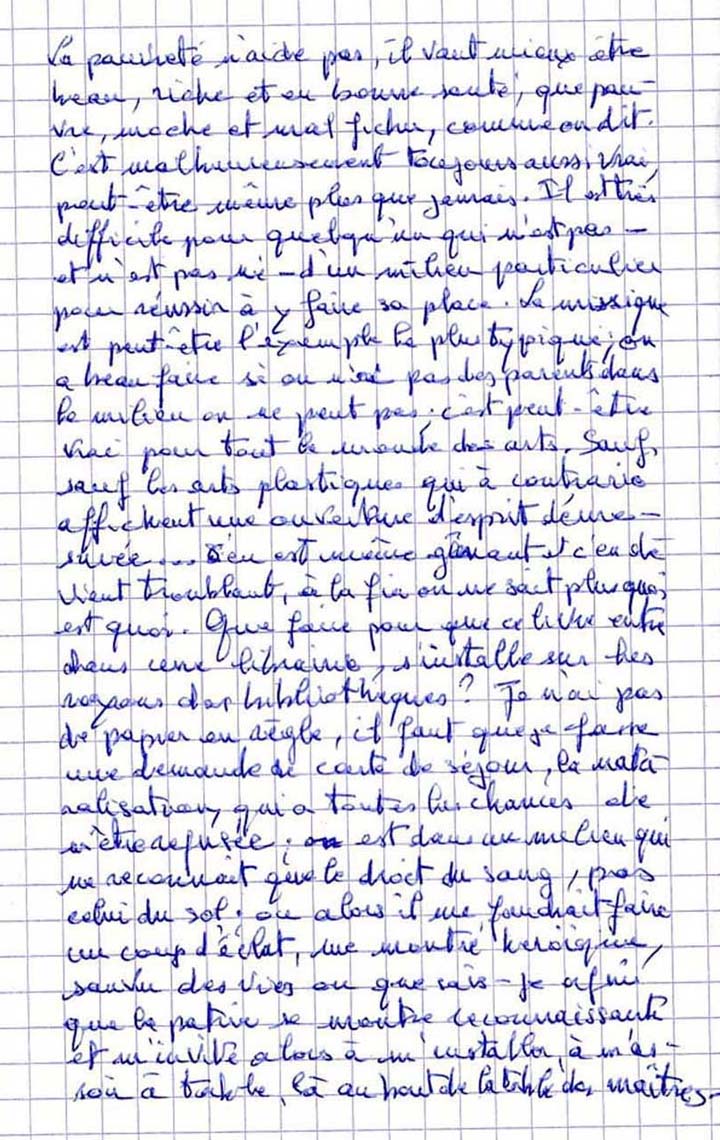 La pauvreté n'aide pas, il vaut mieux être
beau, riche et en bonne santé, que pau-
vre, moche et mal fichu, comme on dit.
C'est malheureusement toujours aussi vrai,
peut-être même plus que jamais. Il est très
difficile pour quelqu'un qui n'est pas –
et n'est pas né – d'un milieu particulier
pour réussir à y faire sa place. La musique
est peut-être l'exemple le plus typique, on
a beau faire si on n'a pas des parents dans
le milieu on ne peut pas ; c'est peut-être
vrai pour tout le monde des arts. Sauf,
sauf les arts plastiques qui à contrario
affichent une ouverture d'esprit déme-
surée... s'en est même gênant et c'en de-
vient troublant, à la fin on ne sait plus quoi
est quoi. Que faire pour que ce livre entre
dans une librairie, s'installe sur les
rayons des bibliothèques ? Je n'ai pas
de papier en règle, il faut que je fasse
une demande de carte de séjour, la natu-
ralisation, qui a toutes les chances de
m'être refusée ; on est dans un milieu qui
ne reconnait que le droit du sang, pas
celui du sol ; ou alors il me faudrait faire
un coup d'éclat, me montré héroïque,
sauver des vies ou que sais-je afin
que la patrie se montre reconnaissante
et m'invite alors à m'installer, à m'as-
soir à table, là au bout de la table des maîtres-